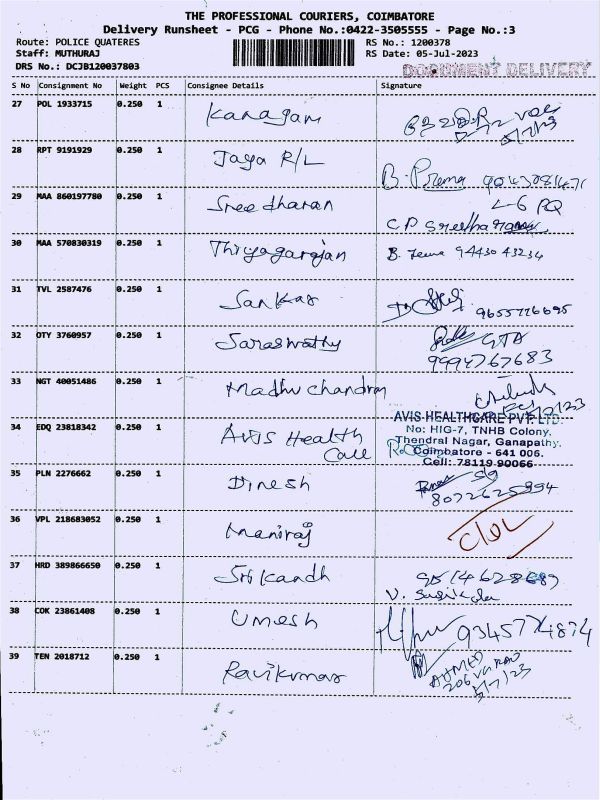 THE PROFESSIONAL COURIERS, COIMBATORE
Delivery Runsheet - PCG - Phone No.:0422-3505555 - Page No.:3
Route: POLICE QUATERES RS No.: 1200378
Staff: MUTHURAJ RS Date: 05-Jul-2023
DRS No.: DCJB120037803 DOCUMENT DELIVERY
S No Consignment No Weight PCS Consignee Details Signature
27 POL 1933715 0.250 1 Kanagam
5/7/23
28 RPT 9191929 0.250 1 Jaya R/L
B. Prema
29 MAA 860197780 0.250 1 Sreedharan
L-6 PQ
C.P Sreedharan
30 MAA 570830319 0.250 1 Thiyagarajan B. Jeema 94430 43234
31 TVL 2587476 0.250 1 Sankar 9655776695
32 OTY 3760957 0.250 1 Saraswathy
9994767683
33 NGT 40051486 0.250 1 Madhu chandran
34 EDQ 23818342 0.250 1 AVIS Health Care
AVIS HEALTHCARE PVT. LTD.
No: HIG-7, TNHB Colony,
Thendral Nagar, Ganapathy,
Coimbatore - 641 006.
Cell: 78119 90066
35 PLN 2276662 0.250 1 Dinesh
8072625894
36 VPL 218683052 0.250 1 Maniraj
37 HRD 389866650 0.250 1 Srikandh 9514628689
V. Sasikala
38 COK 23861408 0.250 1 Umesh 9345774874
39 TEN 2018712 0.250 1 Ravikumar
AHMED
5/7/23